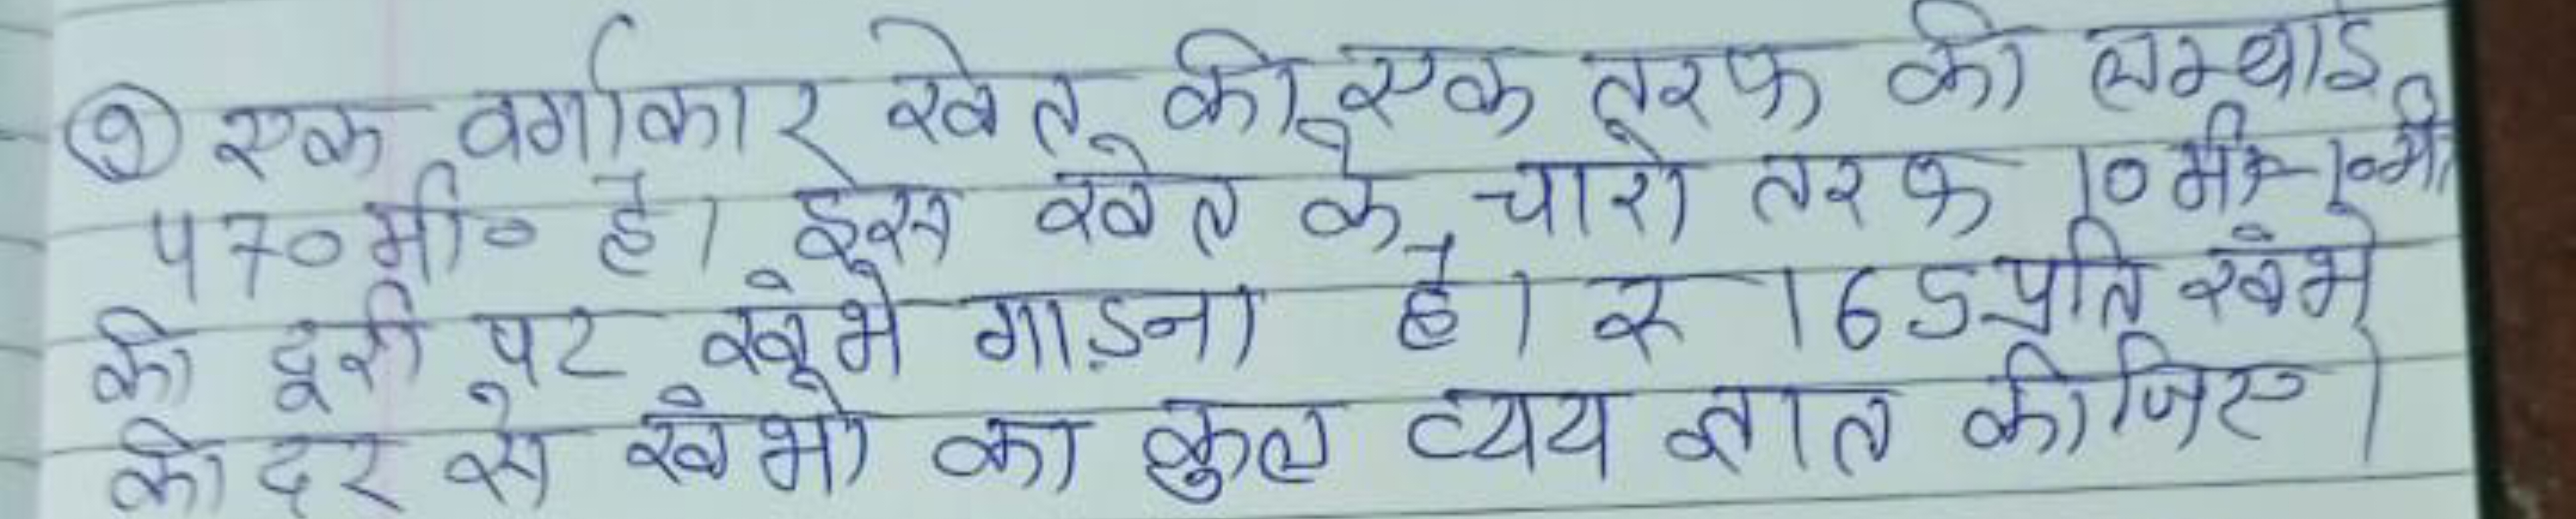 ① एक वर्गाकार खेत की एक तरफ की लम्बाई
470 मी० है। इस खेत के चारो तरफ 10 मी०-10 मी०
की दूरी पर खंभे गाड़ना है। रू 165 प्रति खंभे
की दर से खंभो का कुल व्यय ज्ञात कीजिए।